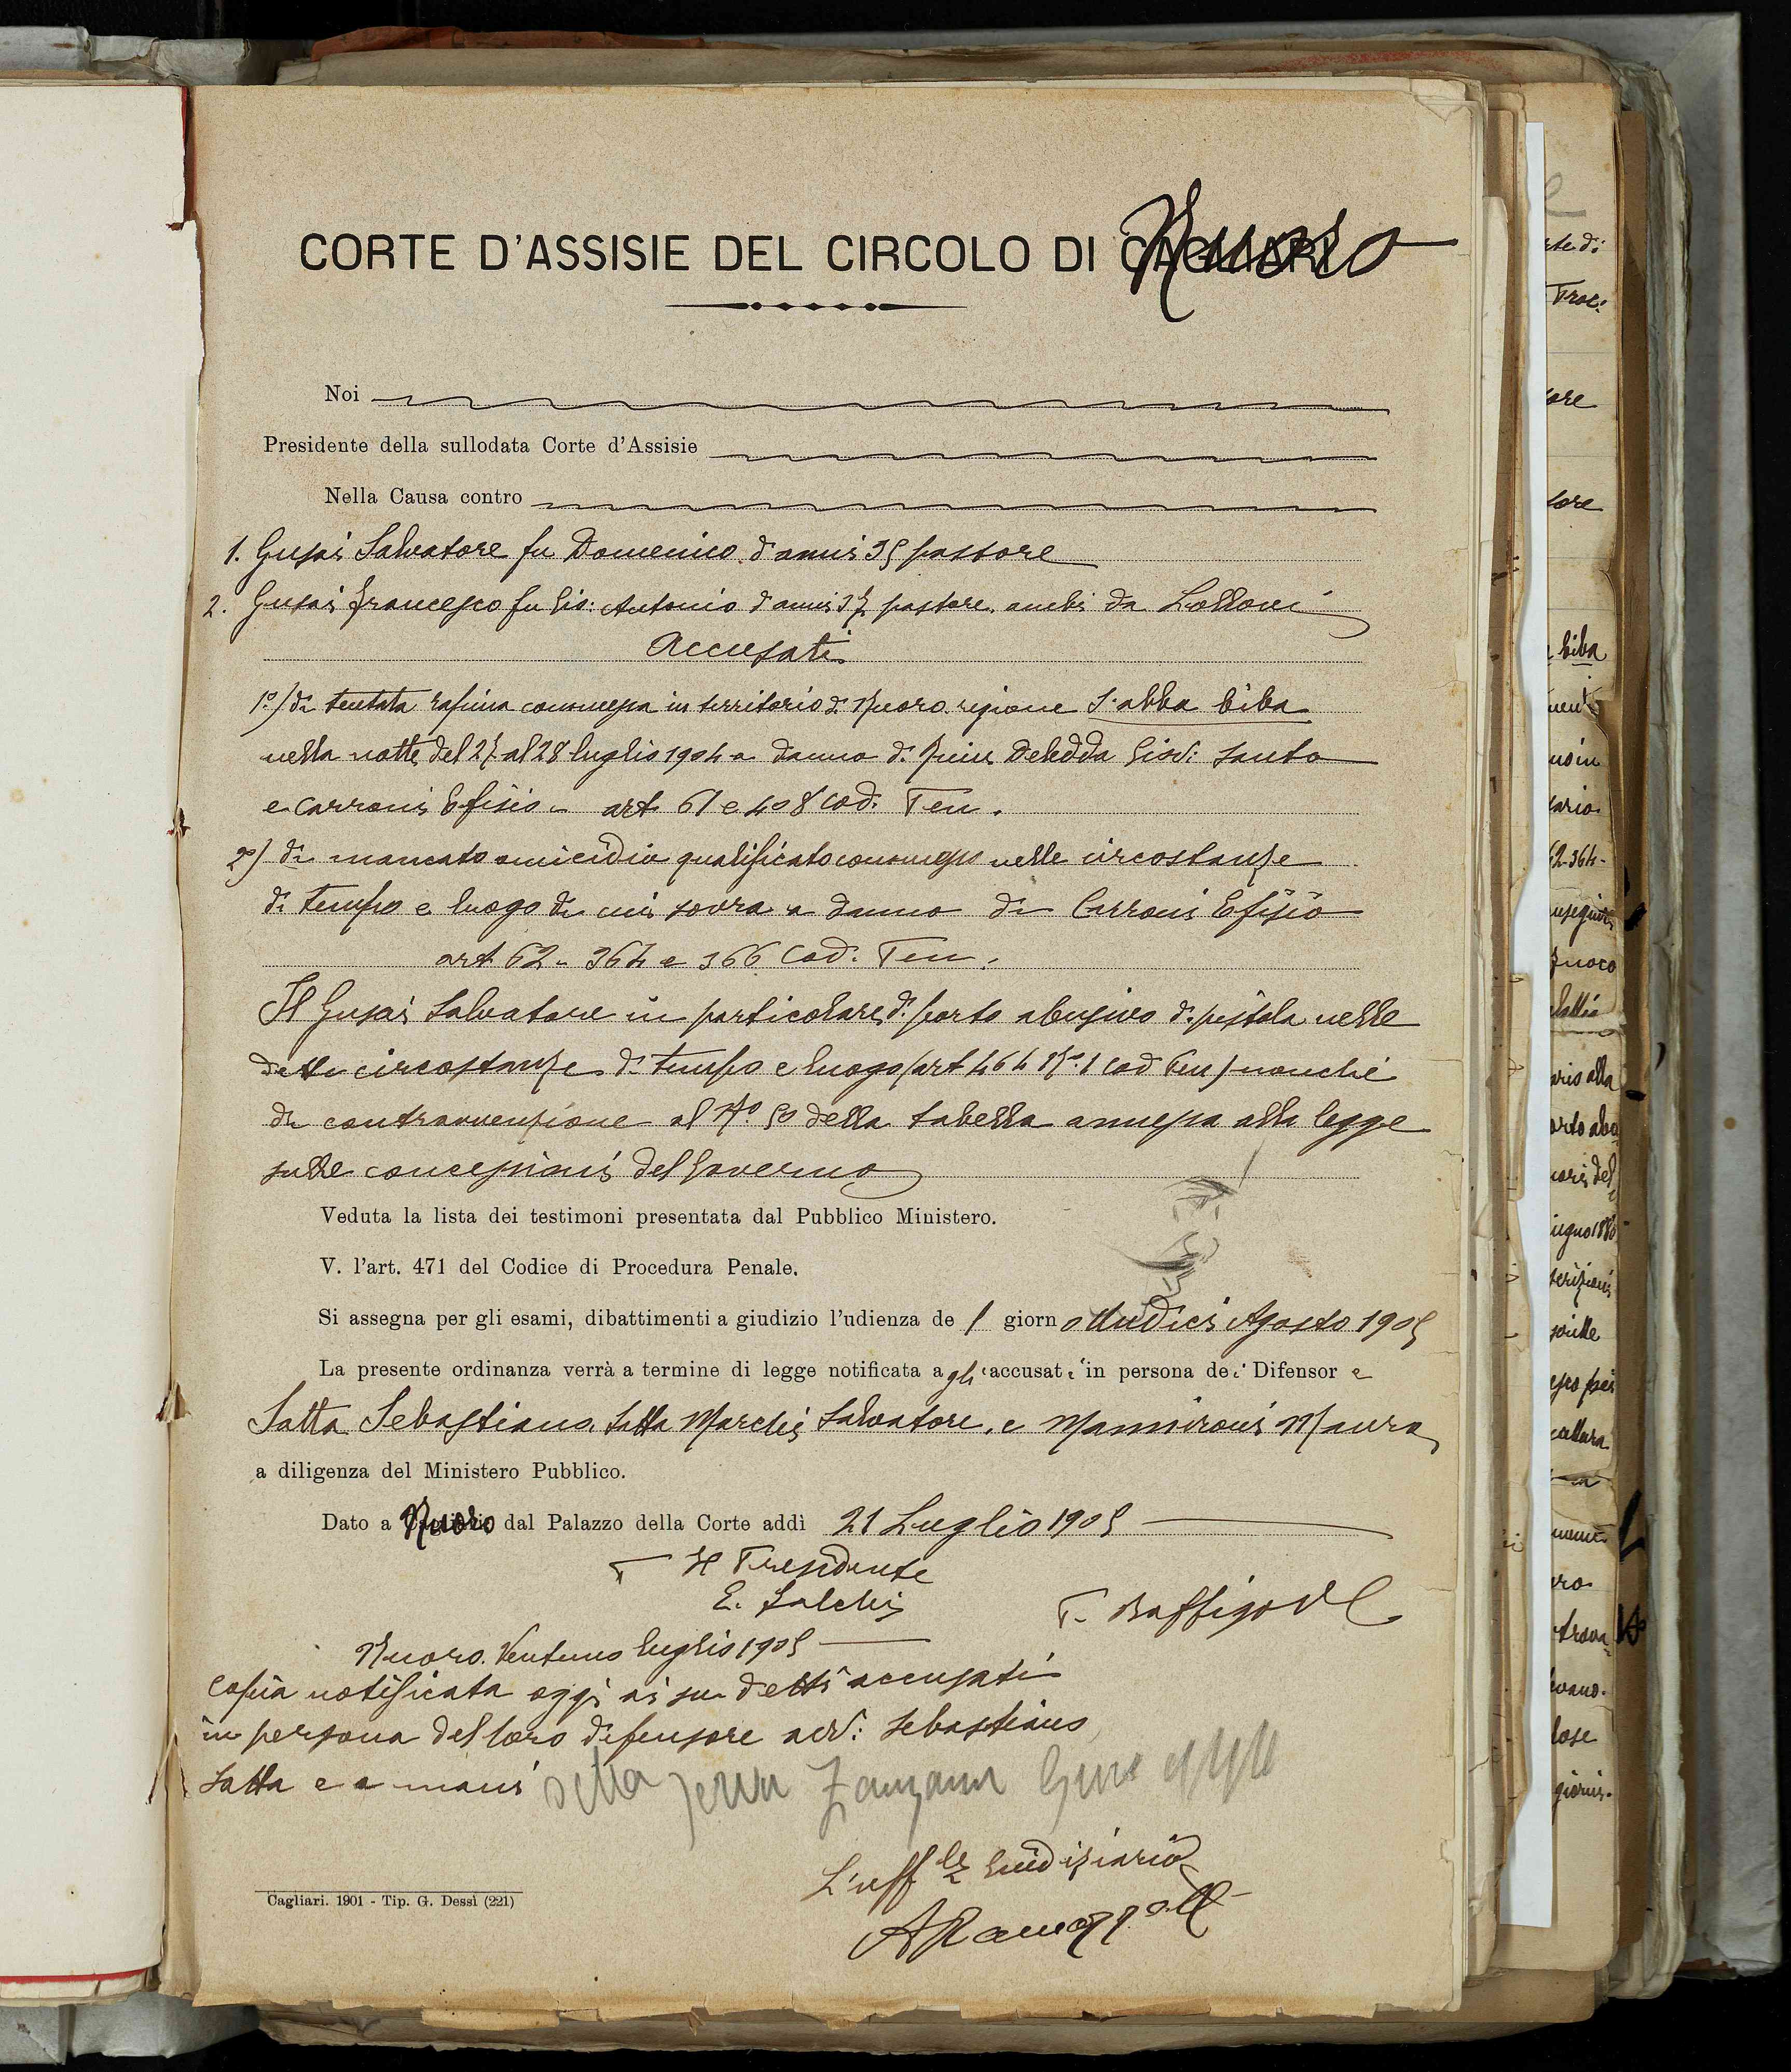 CORTE D'ASSISIE DEL CIRCOLO DI Nuoro
Noi
Presidente della sullodata Corte d'Assisie
Nella Causa contro
1. Gusai Salvatore fu Domenico d'anni 35 pastore
2. Gusai Francesco fu Gio: Antonio d'anni 37 pastore, ambi da Lollovi
Accusati
1º) di tentata rapina commessa in territorio di Nuoro regione S'abba biba
nella notte del 27 al 28 luglio 1904 a danno di Deledda Giov: Santo
e Carroni Efisio - art 61 e 408 Cod. Pen.
2º) di mancato omicidio qualificato commesso nelle circostanze
di tempo e luogo di cui sovra a danno di Carroni Efisio
art 62 - 364 e 366 Cod. Pen.
Il Gusai Salvatore in particolare, di porto abusivo di pistola nelle
dette circostanze di tempo e luogo (art 464 Nº 1 Cod Pen) nonchè
di contravvenzione al Nº 50 della tabella annessa alla legge
sulle concessioni del Governo
Veduta la lista dei testimoni presentata dal Pubblico Ministero.
V. l'art. 471 del Codice di Procedura Penale.
Si assegna per gli esami, dibattimenti a giudizio l'udienza de l giorno undici Agosto 1905
La presente ordinanza verrà a termine di legge notificata agli accusati in persona dei Difensore
Satta Sebastiano, Satta Marchi Salvatore, e Mannironi Mauro
a diligenza del Ministero Pubblico.
Dato a Nuoro dal Palazzo della Corte addì 21 Luglio 1905
Il Presidente
E. Salchi
Nuoro. Ventuno luglio 1905
Copia notificata oggi ai su detti accusati
in persona del loro difensore avv: Sebastiano
Satta e a mani della
L'uffle Giudiziario
Cagliari. 1901 - Tip. G. Dessì (221)